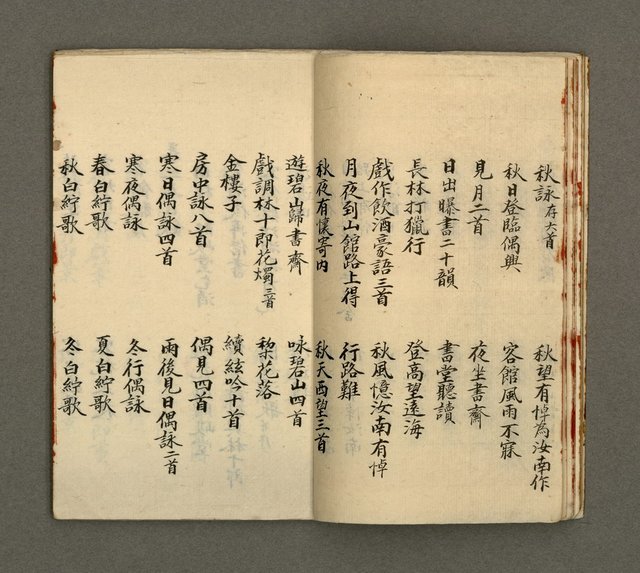 秋詠存六首
秋望有悼為汝南作
秋日登臨偶興
客館風雨不寐
見月二首
夜坐書齋
日出曝書二十韻
書堂聽讀
長林打獵行
登高望遠海
戲作飲酒豪語三首
秋風憶汝南有悼
月夜到山館路上得
行路難
秋夜有懷寄內
秋天西望三首
遊碧山歸書齋
咏碧山四首
戲調林十郎花燭三首
梨花落
金樓子
續絃吟十首
房中詠八首
偶見四首
寒日偶詠四首
雨後見日偶詠二首
寒夜偶詠
冬行偶詠
春白紵歌
夏白紵歌
秋白紵歌
冬白紵歌